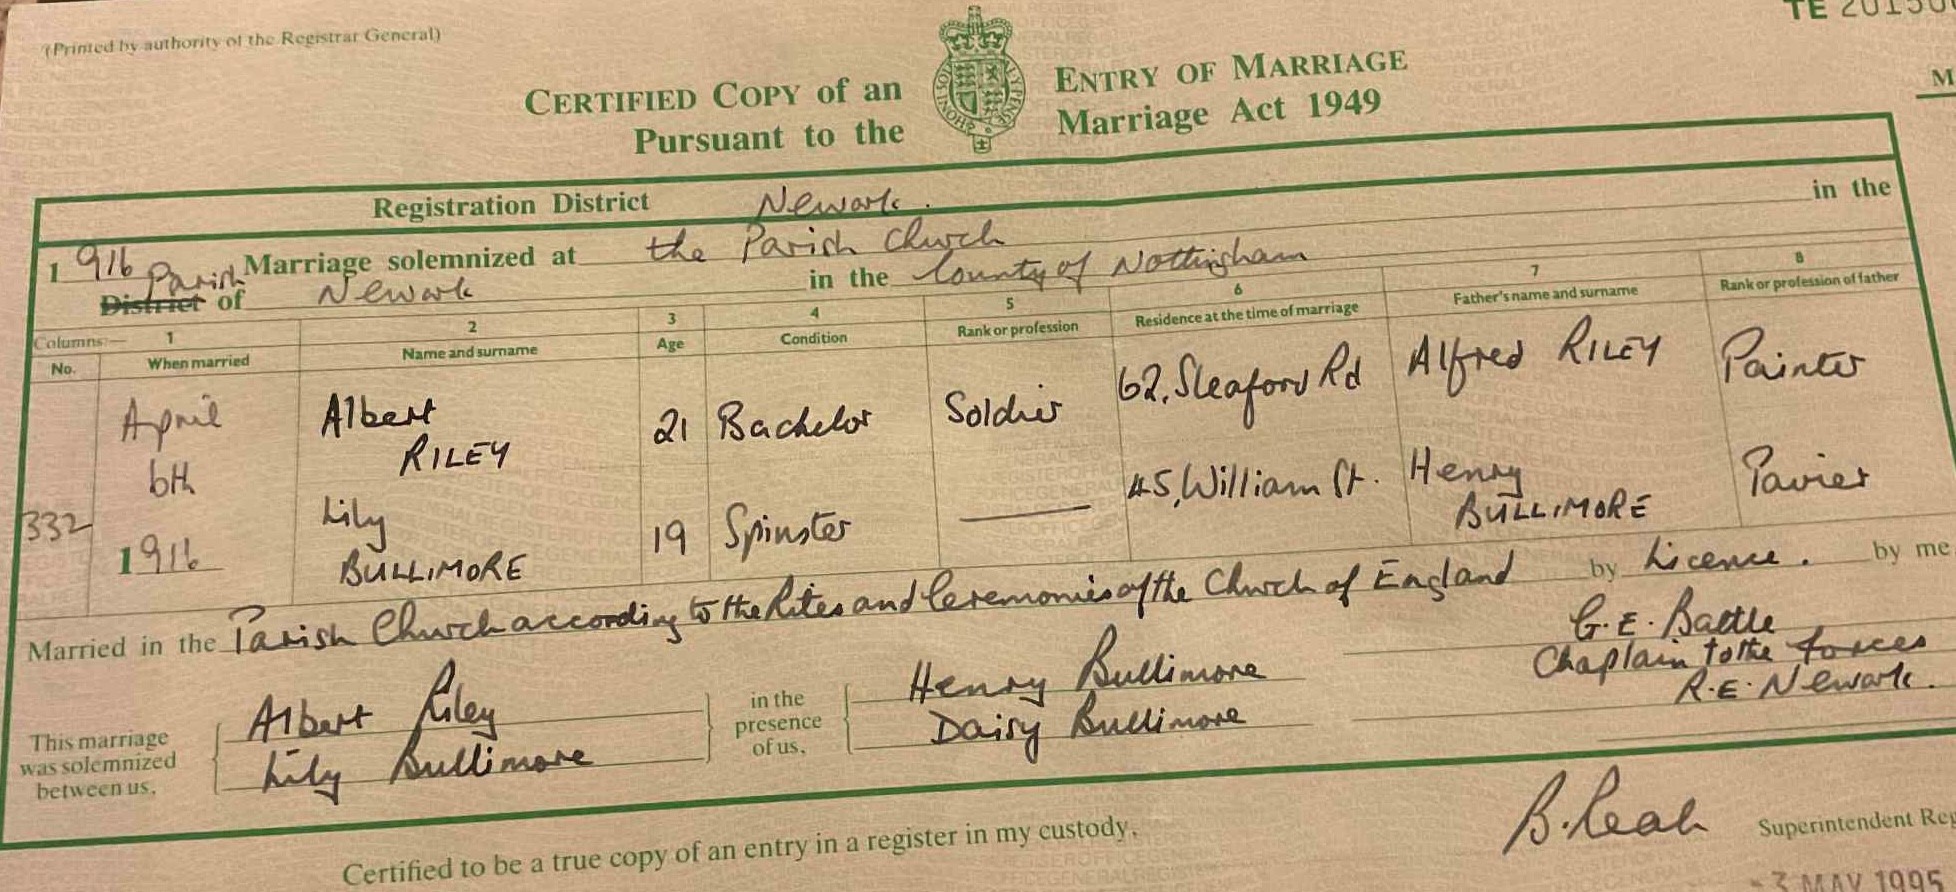 (Printed by authority of the Registrar General)
TE 20150
M
CERTIFIED COPY of an ENTRY OF MARRIAGE
Pursuant to the Marriage Act 1949
Registration District Newark.
1916 Marriage solemnized at the Parish Church in the
Parish District of Newark in the County of Nottingham
Columns:— 1 2 3 4 5 6 7 8
No. When married Name and surname Age Condition Rank or profession Residence at the time of marriage Father's name and surname Rank or profession of father
332 April 6th 1916 Albert RILEY 21 Bachelor Soldier 62, Sleaford Rd Alfred RILEY Painter
Lily BULLIMORE 19 Spinster — 45, William St. Henry BULLIMORE Pavier
Married in the Parish Church according to the Rites and Ceremonies of the Church of England by Licence. by me
G. E. Battle
Chaplain to the forces
R.E. Newark.
This marriage was solemnized between us, Albert Riley
Lily Bullimore
in the presence of us, Henry Bullimore
Daisy Bullimore
Certified to be a true copy of an entry in a register in my custody,
B. Leah Superintendent Reg
-3 MAY 1995